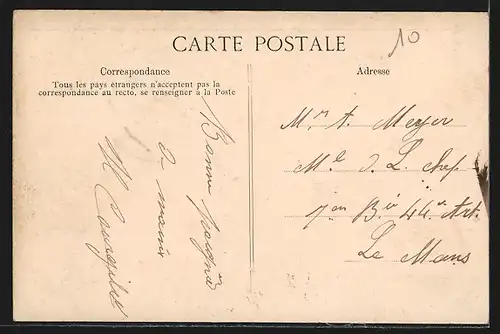 CARTE POSTALE
10
Correspondance
Tous les pays étrangers n'acceptent pas la
correspondance au recto, se renseigner à la Poste
Adresse
Bonne poignée
de main
Mr A. Meyer
Ml d. L. chef
7em Bie 44e Art.
Le Mans